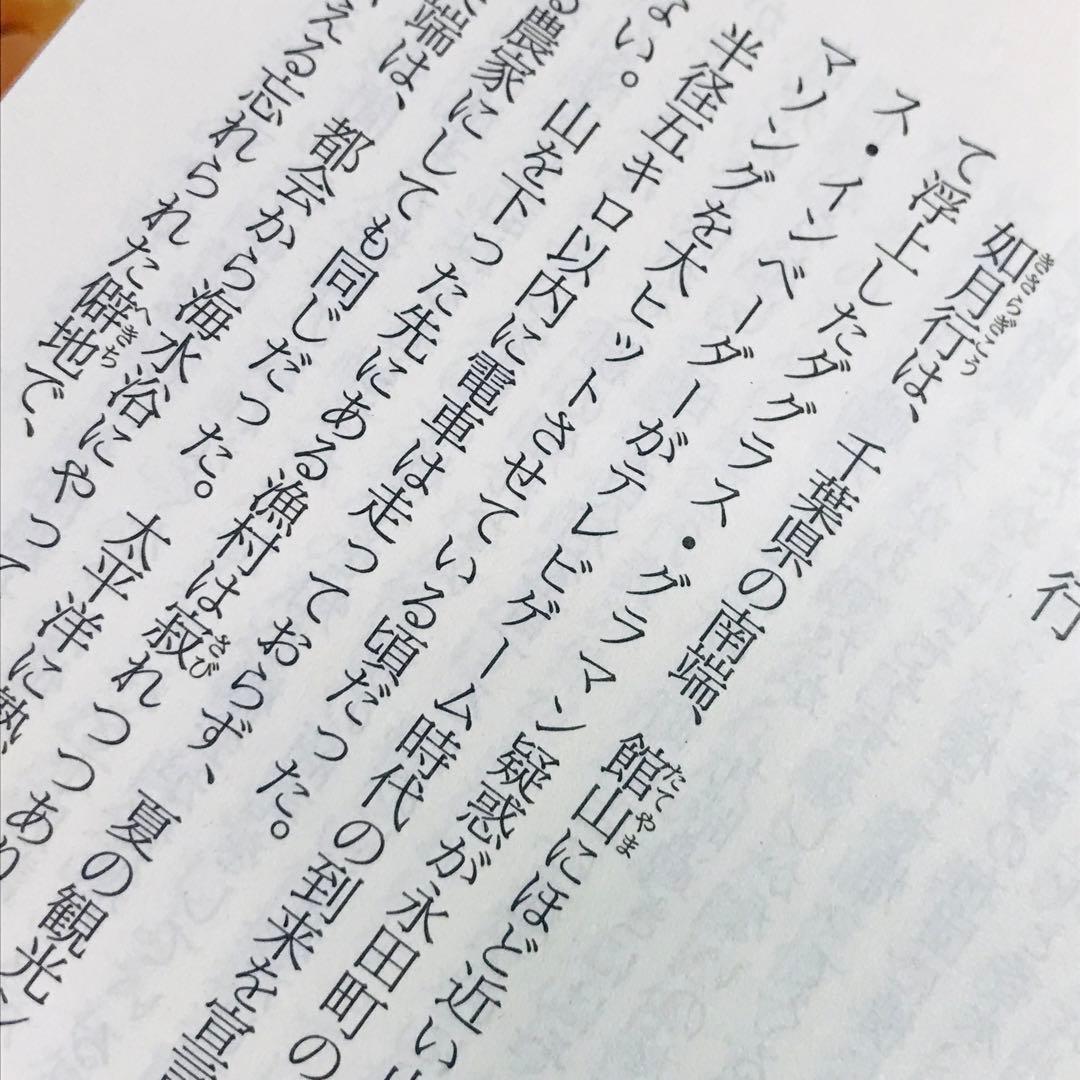 行
如月行は、千葉県の南端、館山にほど近い
て浮上したダグラス・グラマン疑惑が永田町の
ス・インベーダーがテレビゲーム時代の到来を宣言
マソングを大ヒットさせている頃だった。
半径五キロ以内に電車は走っておらず、夏の観光
ない。山を下った先にある漁村は寂れつつあり
る農家にしても同じだった。太平洋に熱
端は、都会から海水浴にやって
える忘れられた僻地で、